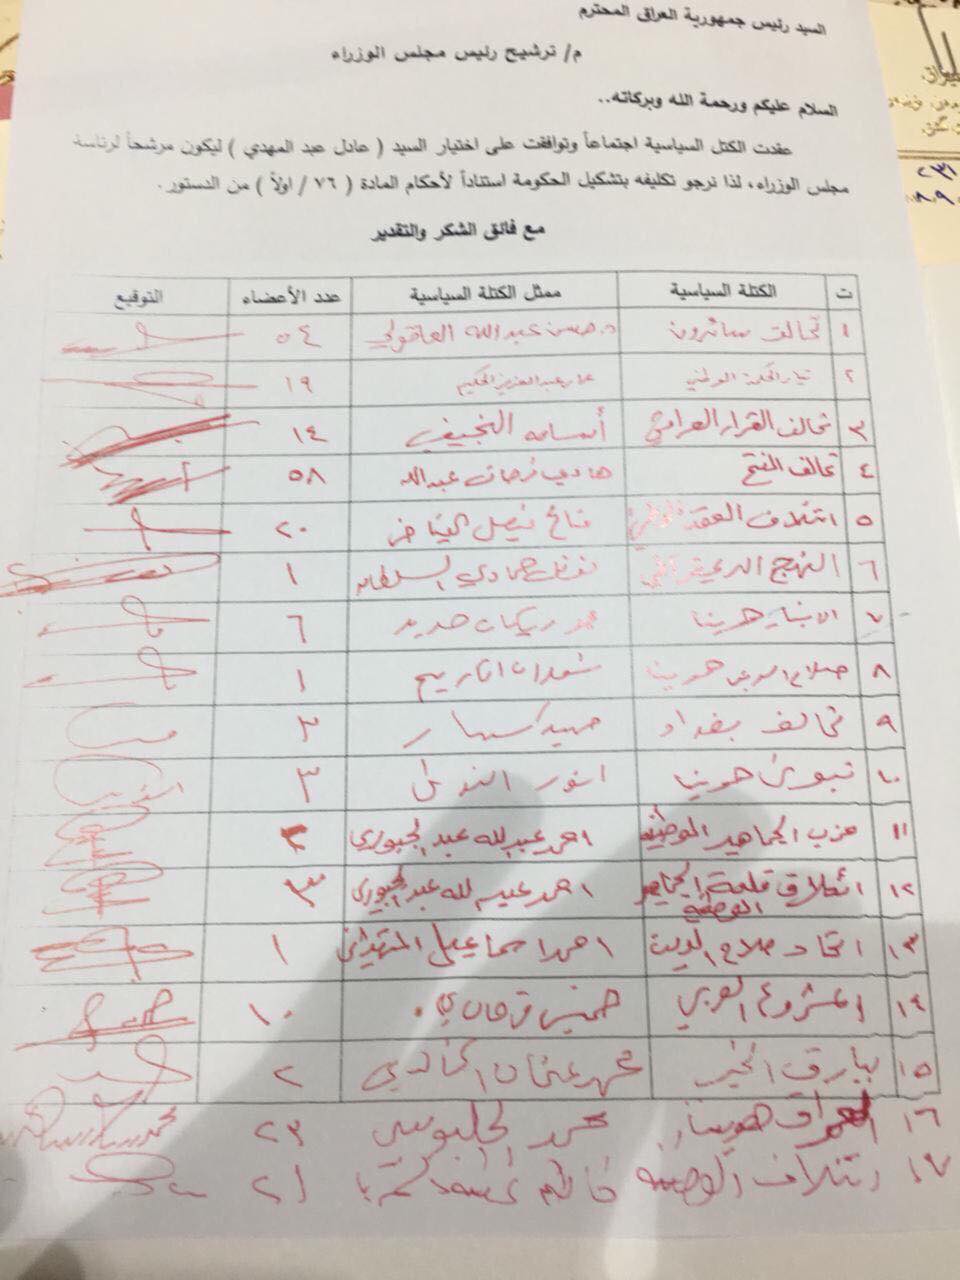 السيد رئيس جمهورية العراق المحترم
م/ ترشيح رئيس مجلس الوزراء
السلام عليكم ورحمة الله وبركاته..
عقدت الكتل السياسية اجتماعاً وتوافقت على اختيار السيد ( عادل عبد المهدي ) ليكون مرشحاً لرئاسة
مجلس الوزراء، لذا نرجو تكليفه بتشكيل الحكومة استناداً لأحكام المادة ( ٧٦ / اولاً ) من الدستور.
مع فائق الشكر والتقدير
ت الكتلة السياسية ممثل الكتلة السياسية عدد الأعضاء التوقيع
١ تحالف سائرون د. حسن عبد الله العاقولي ٥٤
٢ تيار الحكمة الوطني عمار عبد العزيز الحكيم ١٩
٣ تحالف القرار العراقي أسامه النجيفي ١٤
٤ تحالف الفتح هادي فرحان عبد الله ٥٨
٥ ائتلاف العقد الوطني فالح فيصل الفياض ٢٠
٦ النهج الديمقراطي نوفل حمادي السلطان ١
٧ الانبار هويتنا محمد ريكان حديد ٦
٨ صلاح الدين هويتنا شعلان الكريم ١
٩ تحالف بغداد ٣
١٠ نينوى هويتنا انور ٣
١١ حزب الجماهير الوطنية احمد عبد لله عبد الجبوري ٣
١٢ ائتلاف قلعة الجماهير الوطنية احمد عبد لله عبد الجبوري ٣
١٣ اتحاد صلاح احمد اسماعيل المشهداني ١
١٤ المشروع العربي خميس فرحان ١٠
١٥ بيارق الخير محمد عثمان الخالدي ٢
١٦ العراق هويتنا محمد الحلبوسي ٢٣
١٧ ائتلاف الوطنية كاظم ٢١